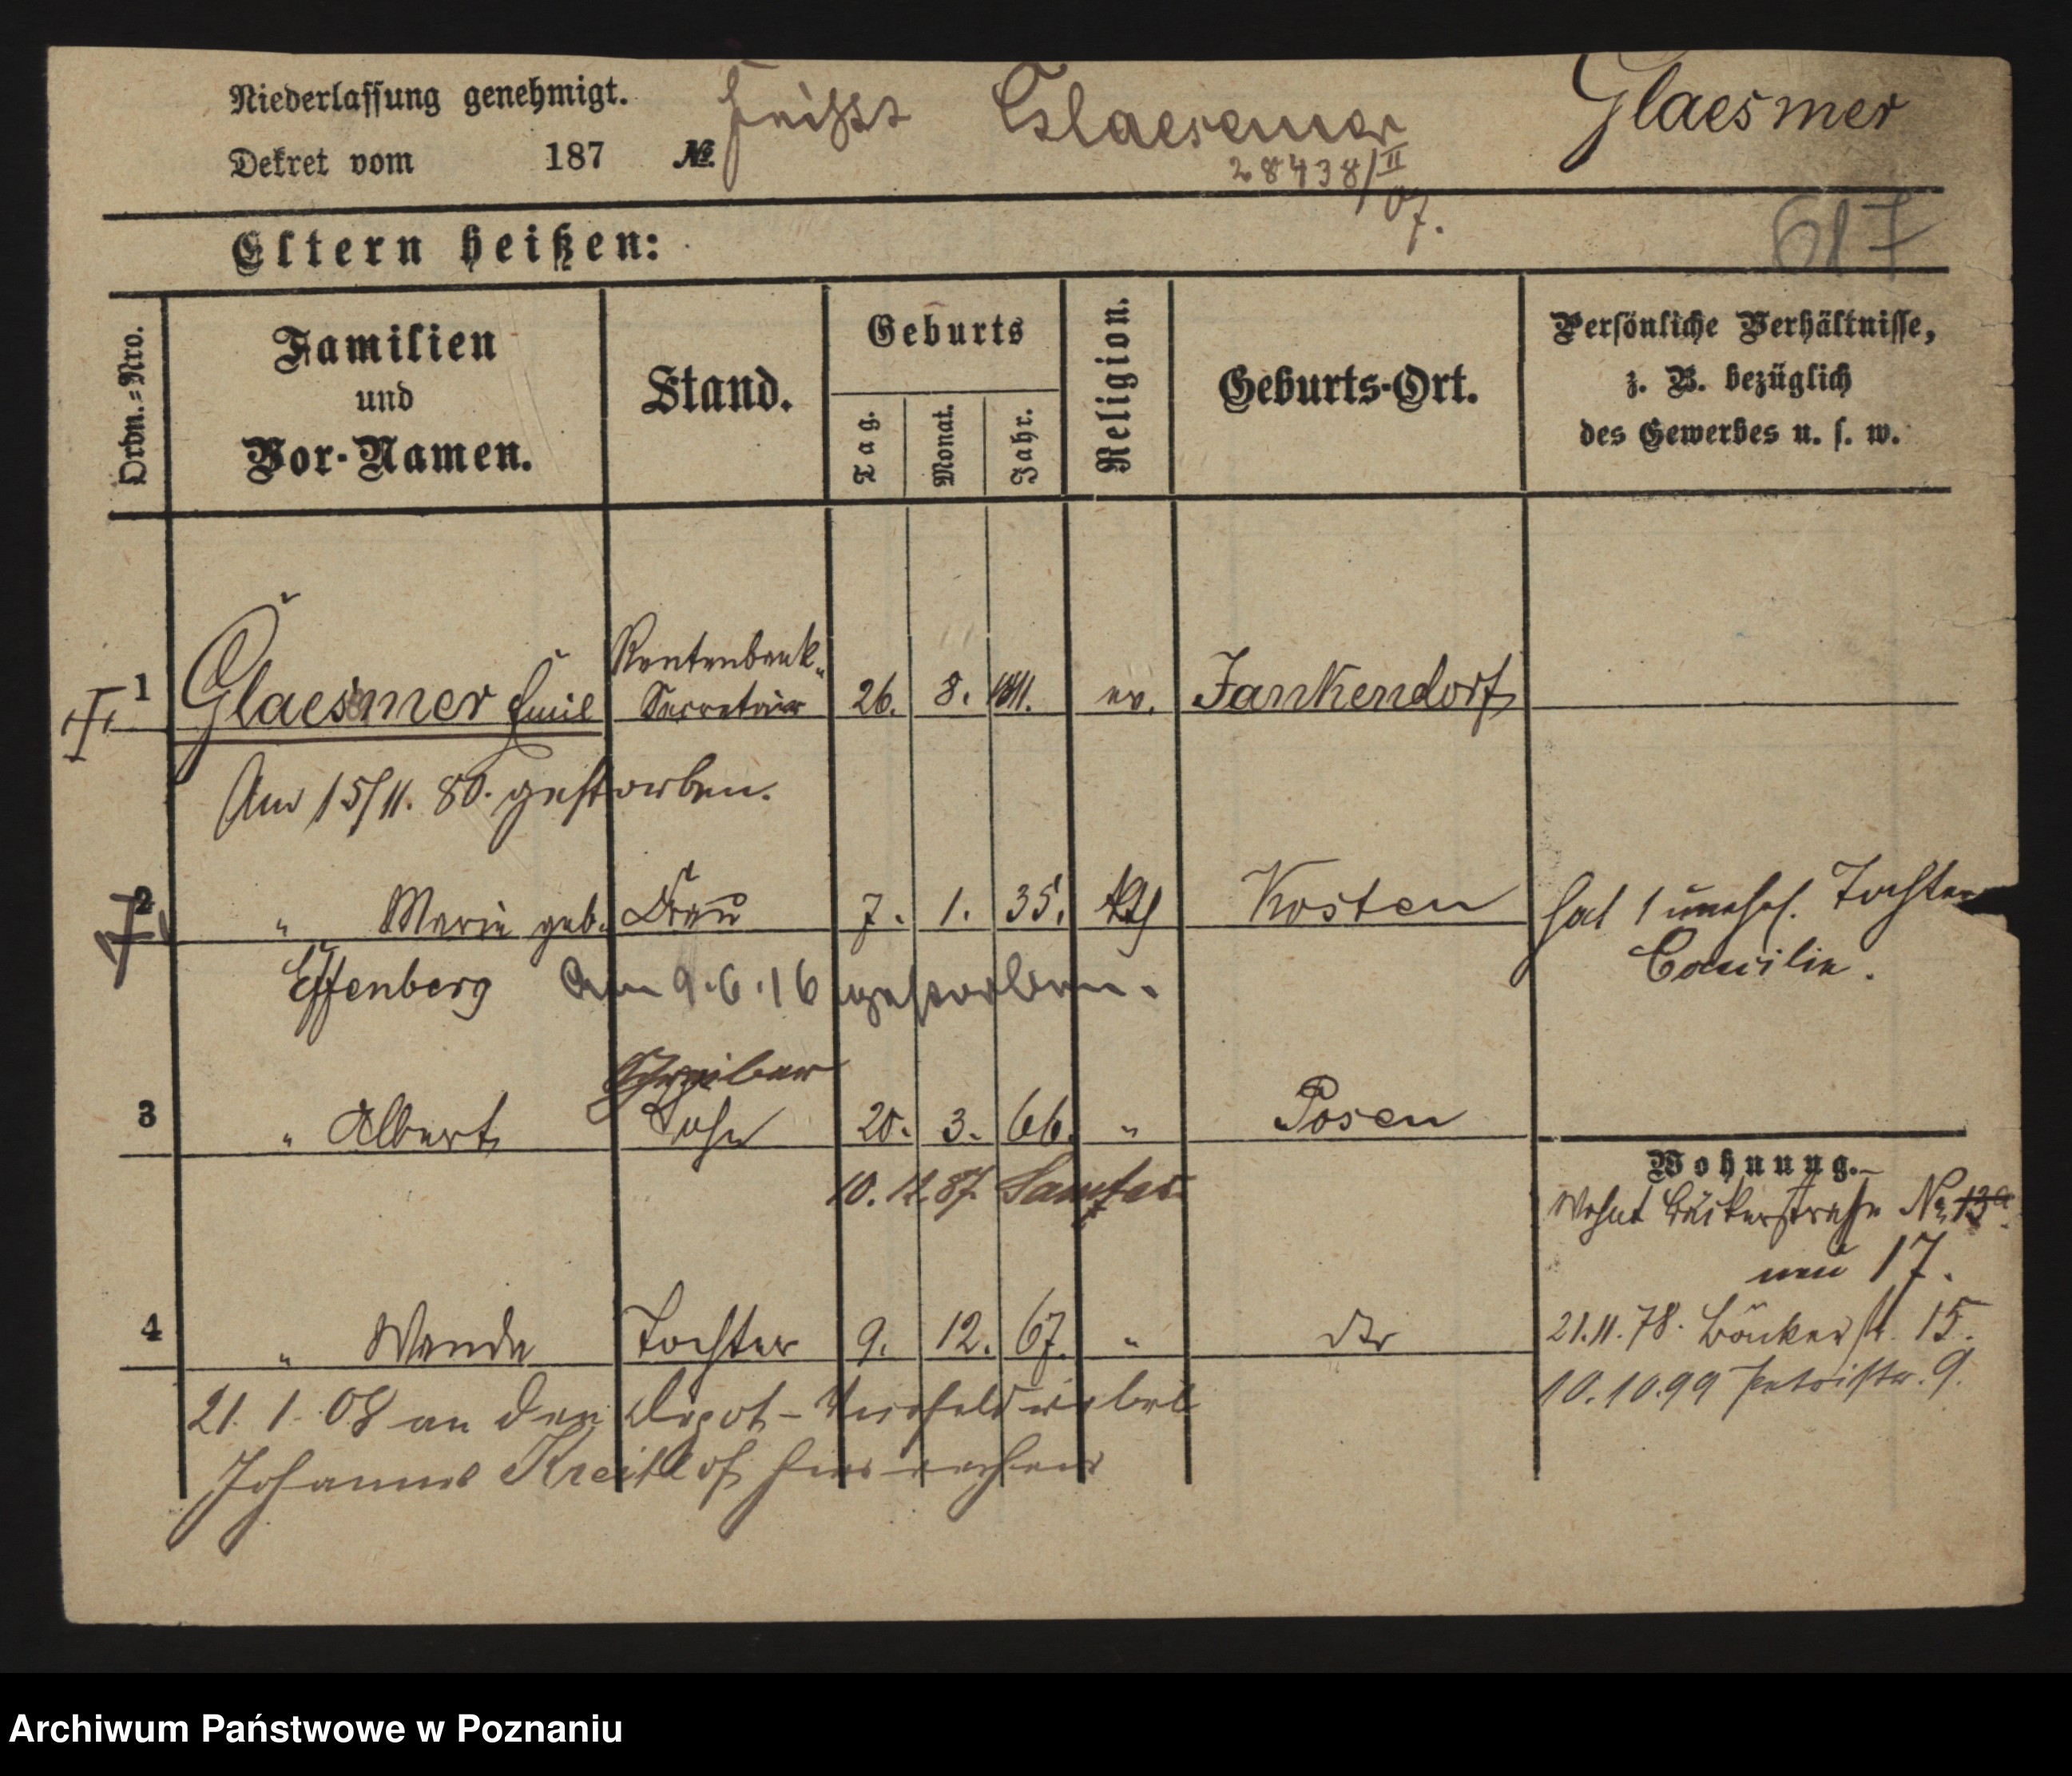 Niederlassung genehmigt. heißt Glaesemer Glaesmer
Dekret vom 187 № 28438/II 07.
617
Eltern heißen:
Ordn.-Nro. Familien und Vor-Namen. Stand. Geburts Tag. Monat. Jahr. Religion. Geburts-Ort. Persönliche Verhältnisse, z. B. bezüglich des Gewerbes u. s. w.
Rentenbank-
1 Glaesmer Emil Secretair 26. 8. 1811. ev. Jankendorf
Am 15/11. 80. gestorben.
2 " Marie geb. Frau 7. 1. 35. kth Kosten hat 1 unehel. Tochter
Effenberg Am 9.6.16 gestorben. Caecilie.
Schreiber
3 " Albert Sohn 20. 3. 66. " Posen
Wohnung.
10. 12. 87. Samter
Wohnt Bäckerstraße No 13a
neu 17.
4 " Wanda Tochter 9. 12. 67. " dto 21.11.78. Bäckerstr. 15.
10.10.99 Petristr. 9.
21. 1. 08 an den Depot-Vizefeldwebel
Johannes Kreitlof hier verheir
Archiwum Państwowe w Poznaniu